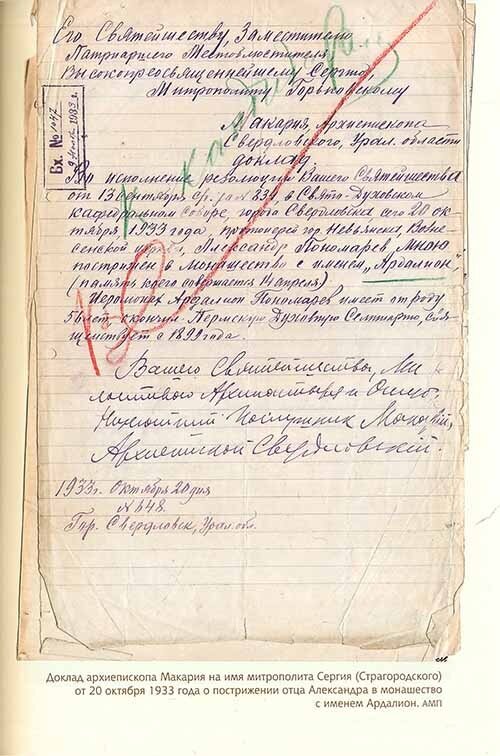 Его Святейшеству, Заместителю
Патриаршего Местоблюстителя,
Высокопреосвященнейшему Сергию,
Митрополиту Горьковскому
Вх. № 1047
1933 г.
Макария, Архиепископа
Свердловского, Урал. области
доклад.
Во исполнение резолюции Вашего Святейшества
от 13 сентября с/г за № 839 в Свято-Духовском
кафедральном Соборе, города Свердловска сего 20 ок-
тября 1933 года, протоиерей гор. Невьянска, Возне-
сенской церкви, Александр Пономарев, мною
пострижен в монашество с именем „Ардалион“,
(память коего совершается 14 апреля).
Иеромонах Ардалион Пономарев имеет от роду
56 лет, окончил Пермскую Духовную Семинарию, свя-
щенствует с 1899 года.
Вашего Святейшества, Ми-
лостивого Архипастыря и Отца,
послушник Макарий,
Архиепископ Свердловский.
1933 г. Октября 20 дня
№ 648.
Гор. Свердловск, Урал. обл.
Доклад архиепископа Макария на имя митрополита Сергия (Страгородского)
от 20 октября 1933 года о пострижении отца Александра в монашество
с именем Ардалион. АМП